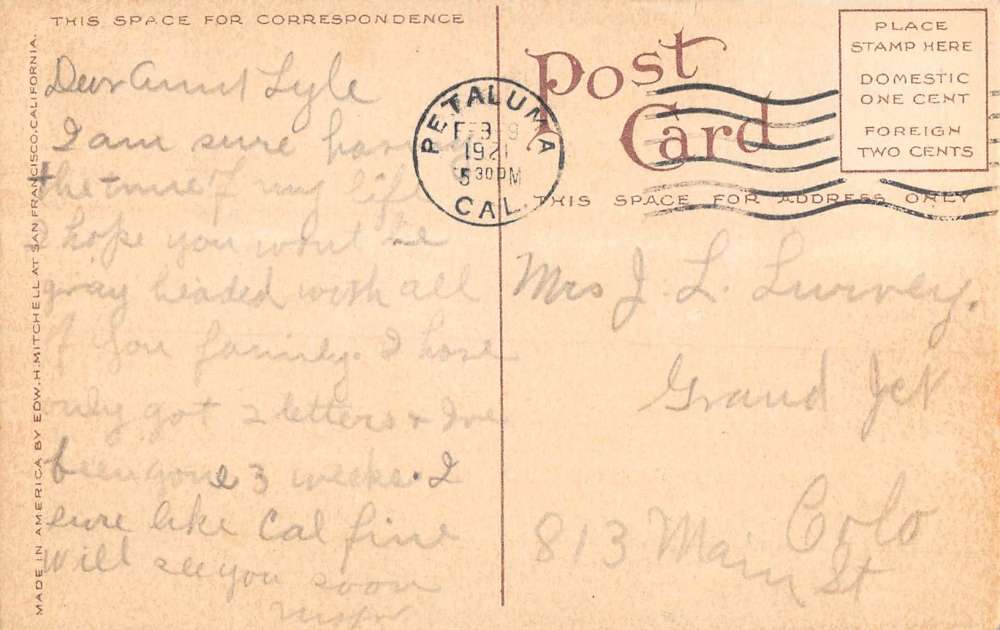 THIS SPACE FOR CORRESPONDENCE
Dear Aunt Lyle
I am sure having
the time of my life
I hope you wont be
gray headed with all
of your family. I have
only got 2 letters & Ive
been gone 3 weeks. I
sure like Cal fine
will see you soon
MADE IN AMERICA BY EDW. H. MITCHELL AT SAN FRANCISCO, CALIFORNIA.
Post
Card
PETALUMA
FEB 9
1921
5 30 PM
CAL.
PLACE
STAMP HERE
DOMESTIC
ONE CENT
FOREIGN
TWO CENTS
THIS SPACE FOR ADDRESS ONLY
Mrs J. L. Lurvey.
Grand Jct
Colo
813 Main St